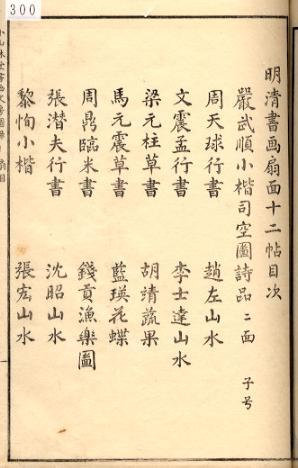 300
明清書画扇面十二帖目次
嚴武順小楷司空圖詩品二面 子号
周天球行書 趙左山水
文震孟行書 李士達山水
梁元柱草書 胡靖蔬果
馬元震草書 藍瑛花蝶
周鼎臨米書 錢貢漁樂圖
張潜夫行書 沈昭山水
黎恂小楷 張宏山水